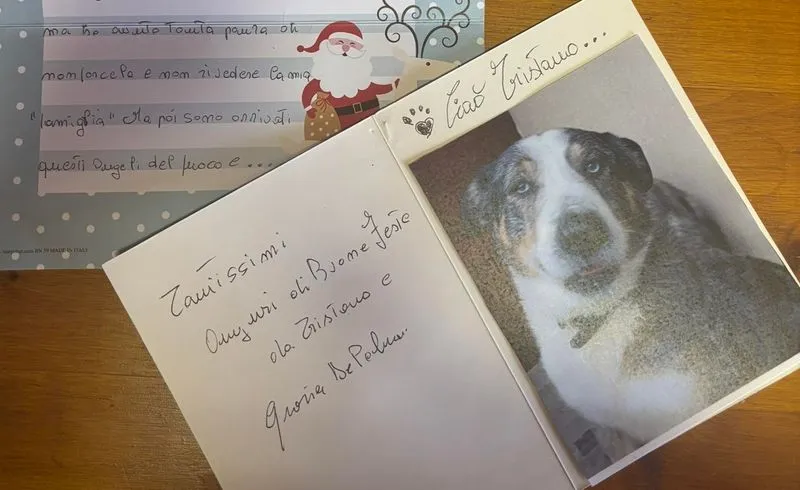 ma ho avuto tanta paura di
non farcela e non rivedere la mia
"famiglia" Ma poi sono arrivati
questi angeli del fuoco e ...
MADE IN ITALY
Ciao Tristano...
Tantissimi
Auguri di Buone Feste
da Tristano e
De Palma